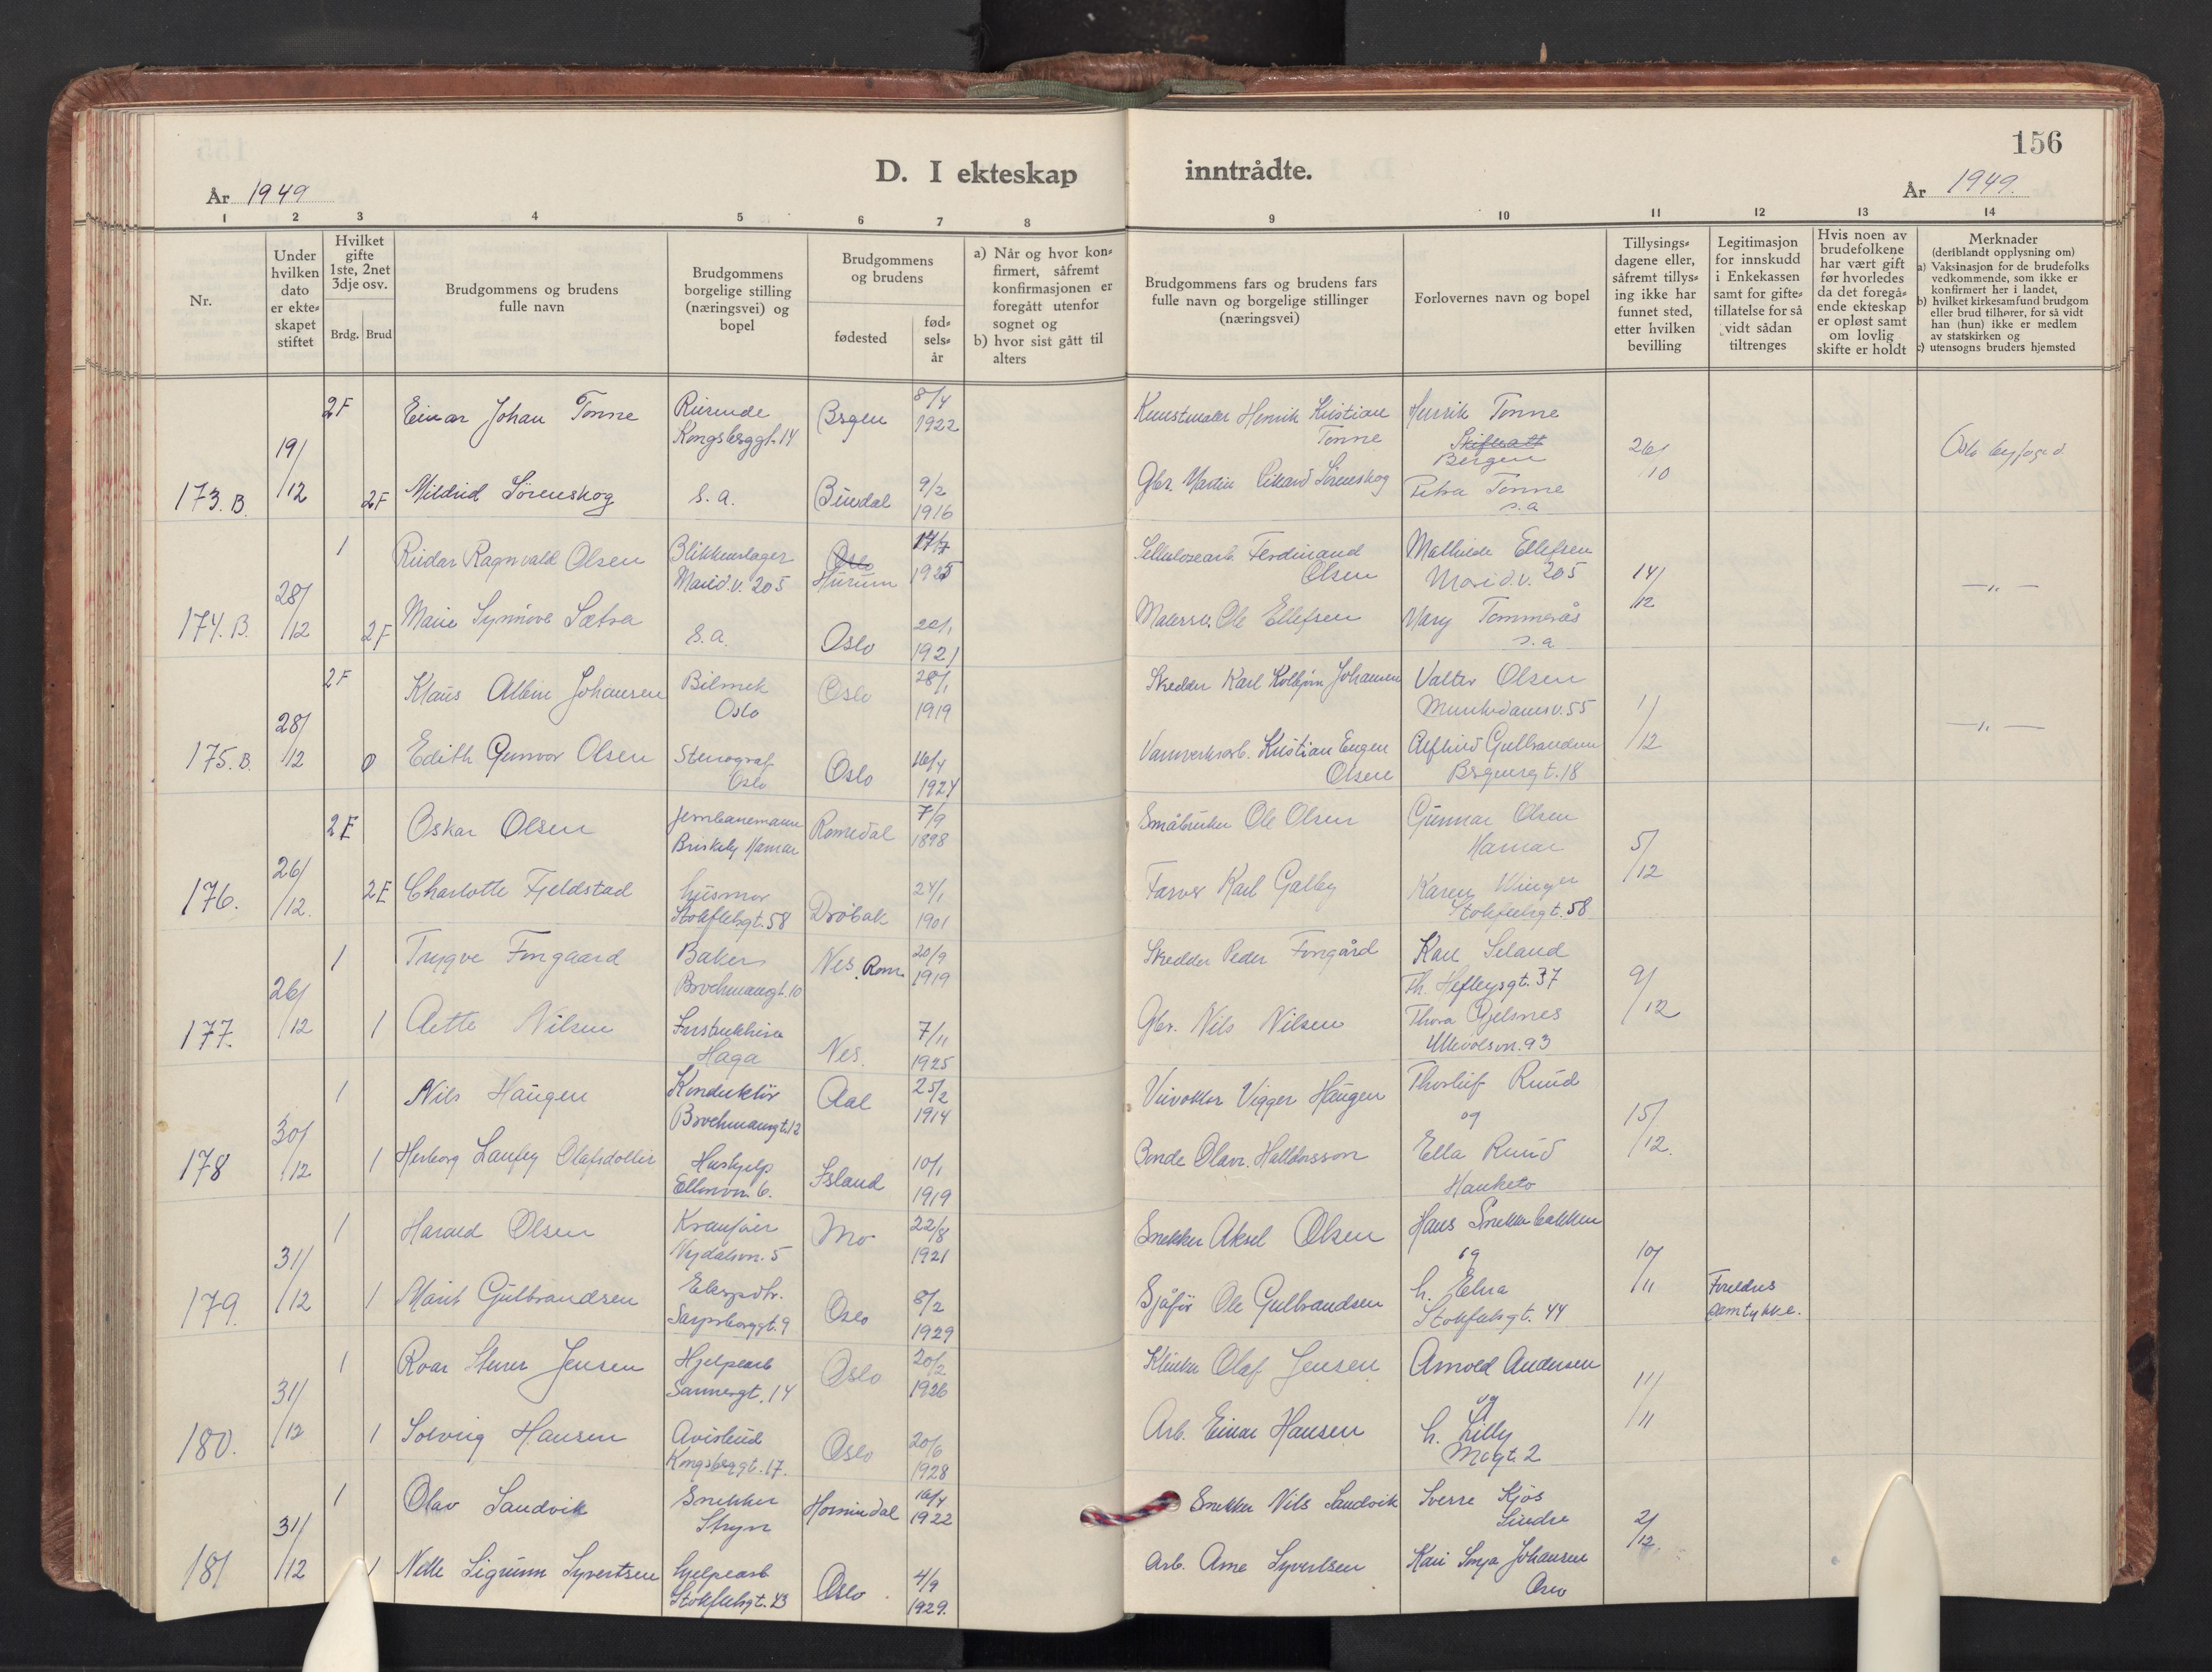 156
D. I ekteskap inntrådte.
År 1949
År 1949.
1 2 3 4 5 6 7 8 9 10 11 12 13 14
Nr.
Under hvilken dato er ekteskapet stiftet
Hvilket gifte 1ste, 2net 3dje osv.
Brdg. Brud
Brudgommens og brudens fulle navn
Brudgommens borgelige stilling (næringsvei) og bopel
Brudgommens og brudens
fødested
fødselsår
a) Når og hvor konfirmert, såfremt konfirmasjonen er foregått utenfor sognet og
b) hvor sist gått til alters
Brudgommens fars og brudens fars fulle navn og borgelige stillinger (næringsvei)
Forlovernes navn og bopel
Tillysingsdagene eller, såfremt tillysing ikke har funnet sted, etter hvilken bevilling
Legitimasjon for innskudd i Enkekassen samt for giftetillatelse for så vidt sådan tiltrenges
Hvis noen av brudefolkene har vært gift før hvorledes da det foregående ekteskap er opløst samt om lovlig skifte er holdt
Merknader
(deriblandt opplysning om)
a) Vaksinasjon for de brudefolks vedkommende, som ikke er konfirmert her i landet,
b) hvilket kirkesamfund brudgom eller brud tilhører, for så vidt han (hun) ikke er medlem av statskirken og
c) utensogns bruders hjemsted
173.B. 19/12
2F Einar Johan Tonne
Kongsberggt. 14
Bergen 8/4 1922
Kunstmaler Henrik Kristian Tonne
Henrik Tonne
Bergen
26/10
Oslo byfoged
2F Mildrid Sørenskog
s.a.
Bindal 9/2 1916
Gbr. Martin Edvard Sørenskog
Petra Tonne
s.a
174.B. 28/12
1 Reidar Ragnvald Olsen
Blikkenslager
Marid.v. 205
Oslo
Hurum 17/7 1925
Cellulosearb. Ferdinand Olsen
Mathilde Ellefsen
Marid.v. 205
14/12
— " —
2F Marie Synnøve Sætra
s.a.
Oslo 20/1 1921
Malersv. Ole Ellefsen
Mary Tommerås
s.a
175.B. 28/12
2F Klaus Albin Johansen
Bilmek
Oslo
Oslo 28/1 1919
Skredder Karl Kolbjørn Johansen
Valter Olsen
Munkedamsv. 55
1/12
— " —
0 Edith Gunvor Olsen
Stenograf
Oslo
Oslo 16/4 1924
Vannverksarb. Kristian Eugen Olsen
Alfhild Gulbrandsen
Bergensgt. 18
176. 26/12.
2F Oskar Olsen
Jernbanemann
Briskeby Hamar
Romedal 7/9 1898
Småbruker Ole Olsen
Gunnar Olsen
Hamar
5/12
2E Charlotte Fjeldstad
husmor
Stokflethsgt. 58
Drøbak 24/1 1901
Farver Karl Galby
Karen Winger
Stokflethsgt. 58
177. 26/12
1 Trygve Fongaard
Baker
Brochmannsgt. 10
Nes. Rom. 20/9 1919
Skredder Peder Fongård
Karl Seland
Th. Heftyesgt. 37
9/12
1 Aette Nilsen
Haga
Nes. 7/11 1925
Gbr. Nils Nilsen
Thora Gjelsnes
Ullevålsvn. 93
178 30/12
1 Nils Haugen
Konduktør
Brochmannsgt. 12
Aal 25/2 1914
Veivokter Vigger Haugen
Thorleif Ruud
og
15/12.
1 Herborg Laufey Olafsdottir
Hushjelp
Island 10/1 1919
Bonde Olavr. Halldorsson
Ella Ruud
Hauketo
179. 31/12
1 Harald Olsen
Kranfører
Nydalsvn. 5
Mo 22/8 1921
Snekker Aksel Olsen
Hans Snekkebakken
og
10/11
Foreldres
samtykke.
1 Marit Gulbrandsen
Eksped.tr.
Sarpsborggt. 9
Oslo 8/2 1929
Sjåfør Ole Gulbrandsen
h. Elna
Stokflethsgt. 44
180. 31/12
1 Roar Stener Jensen
Hjelpearb
Sannergt. 14
Oslo 20/2 1926
Olaf Jensen
Arnold Andersen
og
11/11
1 Solveig Hansen
Avisbud
Kongsberggt. 17.
Oslo 20/6 1928
Arb. Einar Hansen
h. Lilly
Mogt. 2
181 31/12
1 Olav Sandvik
Snekker
Stryn
Hornindal 16/4 1922
Snekker Nils Sandvik
Sverre Kjøs
2/12.
1 Nelle Sigrunn Syvertsen
hjelpearb
Stokflethsgt. 43
Oslo 4/9 1929.
Arb. Arne Syvertsen
Kari Sonja Johansen
Oslo